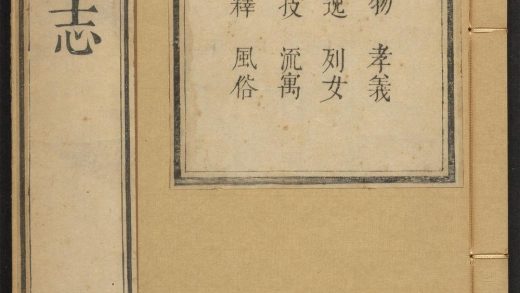 物 孝義
逸 列女
技 流寓
釋 風俗
志